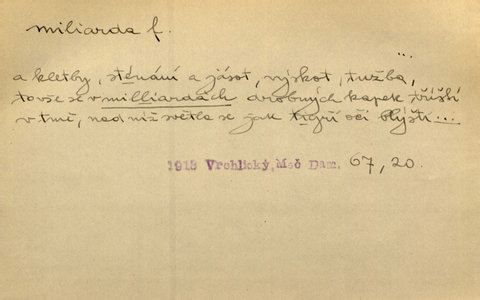 miliarda f.
...
a kletby, sténání a jásot, výskot, tužba,
to vše se v milliardách drobných kapek tříští
v tmě, nad níž světla se jak tygří oči blýští...
1913 Vrchlický, Meč Dam. 67, 20.